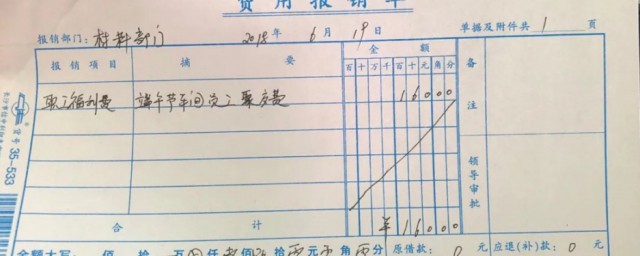 费用报销单
报销部门：材料部门 2018年 6月 19日 单据及附件共 1 页
报销项目 摘要 金额 备注
百十万千百十元角分
职工福利费 端午节车间员工聚餐费 16000
领导审批
合计 ¥16000
金额大写： 佰 拾 万 仟 佰 拾 元 角 分 原借款： 0 元 应退（补）款： 0 元
35-533